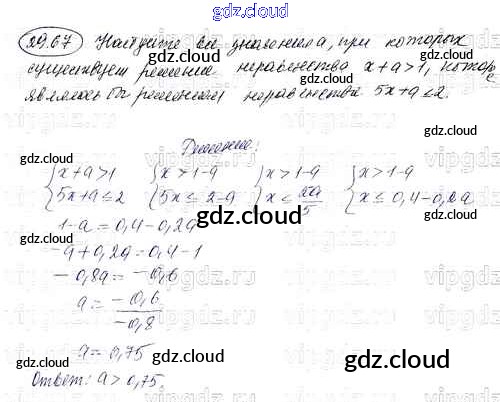 gdz.cloud
29.67 Найдите все значения a, при которых
существует решение неравенства x+a>1, котор
являлось бы решением неравенства 5x+a≤2.
gdz.cloud
Решение:
{x+a>1 {x>1-a {x>1-a {x>1-a
{5x+a≤2 {5x≤2-a {x≤2-a/5 {x≤0,4-0,2a
gdz.cloud
1-a=0,4-0,2a
-a+0,2a=0,4-1
-0,8a=-0,6
a=-0,6/-0,8
gdz.cloud
a=0,75
gdz.cloud gdz.cloud
Ответ: a>0,75.
gdz.cloud